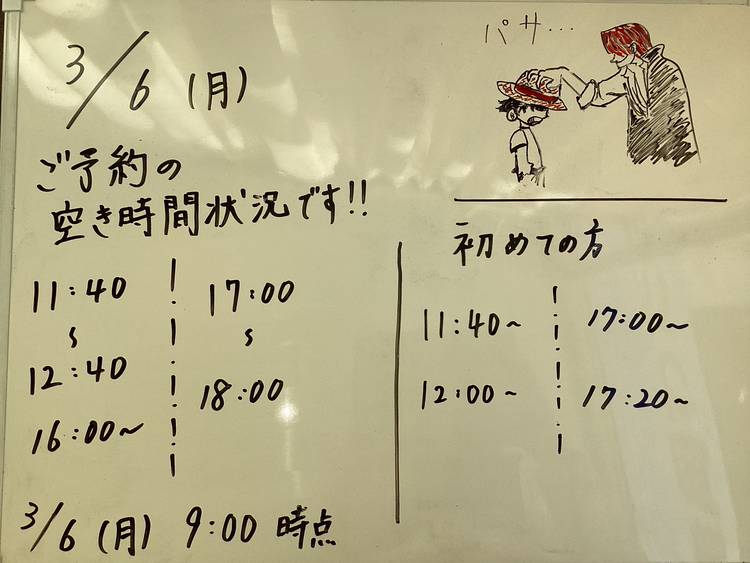 3/6 (月)
パサ…
ご予約の
空き時間状況です!!
11:40
〜
12:40
16:00〜
17:00
〜
18:00
初めての方
11:40〜
12:00〜
17:00〜
17:20〜
3/6 (月) 9:00 時点